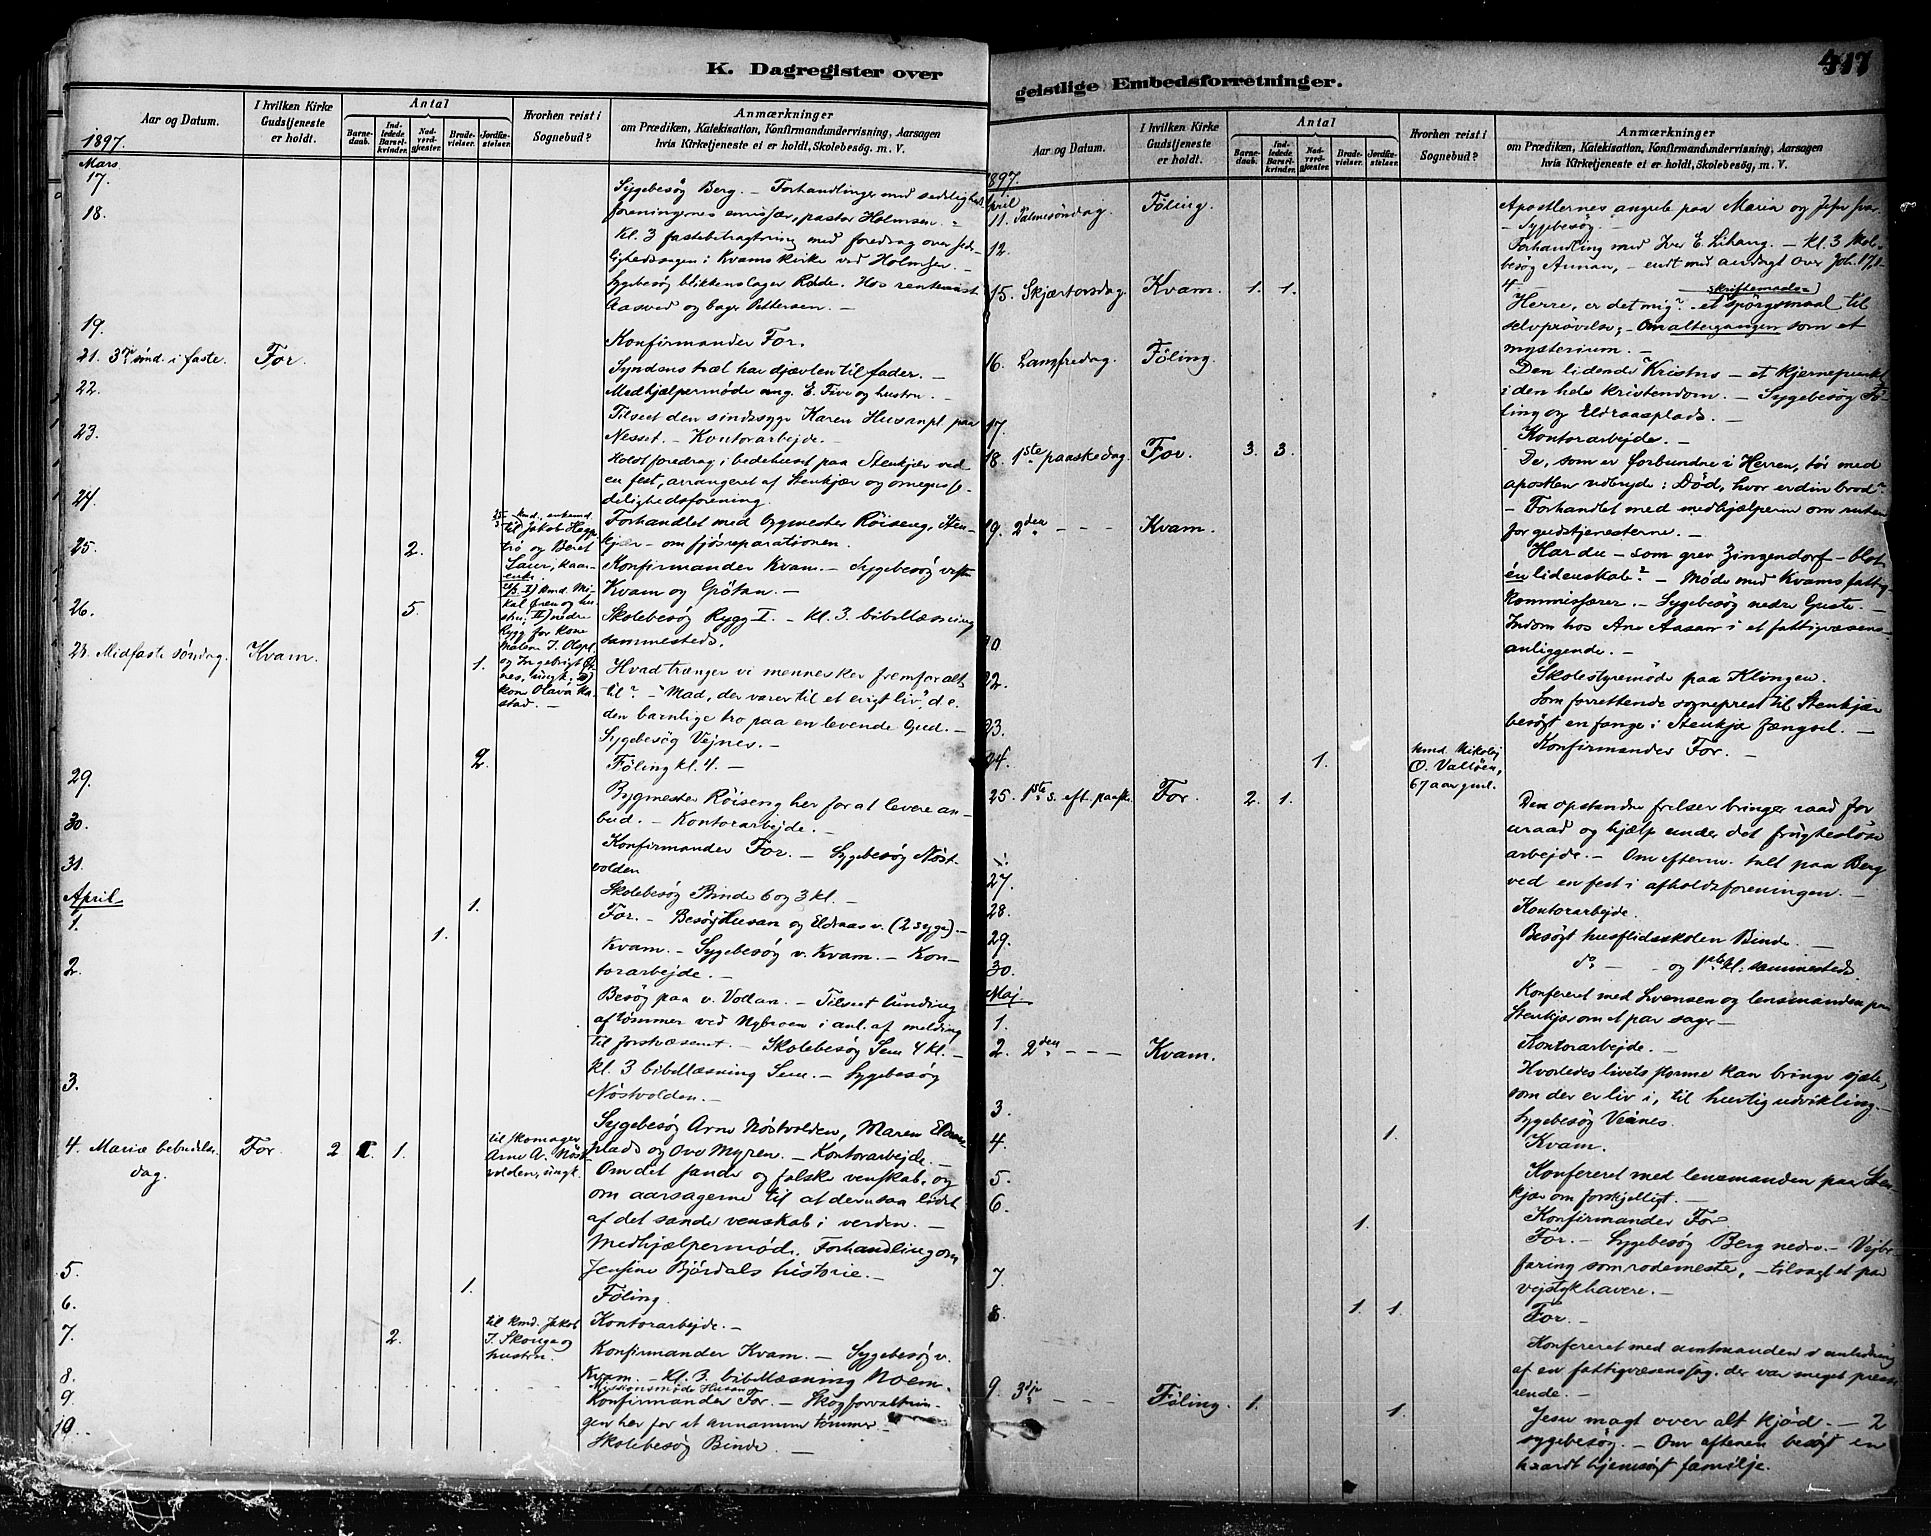 K. Dagregister over
Aar og Datum.
I hvilken Kirke Gudstjeneste er holdt.
Antal
Barnedaab.
Indledede Barselkvinder.
Nadverdgjester.
Brudevielser.
Jordfæstelser.
Hvorhen reist i Sognebud?
Anmærkninger
om Prædiken, Katekisation, Konfirmandundervisning, Aarsagen
hvis Kirketjeneste ei er holdt, Skolebesøg, m. V.
1897.
Mars
17.
Sygebesøg Berg. – Forhandlinger med sedelighed
18.
foreningernes emissær, pastor Holmsen. –
Kl. 3 fastebetragtning med foredrag over sede-
lighedssagen i Kvams kirke ved Holmsen. –
Sygebesøg blikkenslager Røde. Hos rentenist
Aasved og bager Pettersen. –
19.
Konfirmander For.
21. 3die sønd. i faste. For
Syndens træl har djævlen til fader. –
22.
Medhjælpermøde ang. E. Five og hustru. –
Tilseet den sindssyge Karen Husanpl. paa
23.
Nesset. – Kontorarbejde. –
Holdt foredrag i bedehuset paa Stenkjær ved
en fest, arrangeret af Stenkjær og omegns sæ-
24.
delighedsforening.
Forhandlet med bygmester Røiseng, Sten-
25. 2.
kjær – om fjøsreparationen.
til Jakob Hegge
og Beret
Konfirmander Kvam. – Sygebesøg
Kvam og Grøtan. –
26. 5.
Skolebesøg Rygg I. – kl. 3. bibellæsning
sammesteds.
28. Midfaste søndag. Kvam. 1.
Hvad trænger vi mennesker fremfor alt
til? – "Mad, der varer til et evigt liv", d.e.
den barnlige tro paa en levende Gud. –
Sygebesøg Vejnes. –
2.
Føling kl. 4. –
29.
Bygmester Røiseng her for at levere an-
bud. – Kontorarbejde. –
30.
Konfirmander For. – Sygebesøg Nøst-
31.
volden
Skolebesøg Binde 6 og 3 kl. –
April
1.
1.
For. – Besøg Husan og Eldraas v. (2 syge). –
1.
Kvam. – Sygebesøg v. Kvam. – Kon-
2.
torarbejde. –
Besøg paa v. Vollan. – Tilseet lunding
af tømmer ved Nybroen i anl. af melding
til forstvæsenet. – Skolebesøg Sem 4 kl. –
kl. 3 bibellæsning Sem. – Sygebesøg
3.
Nøstvolden. –
Sygebesøg Arne Nøstvolden, Maren Eldraas-
plads og Ove Myren. – Kontorarbejde. –
4. Mariæ bebudelses dag. For 2 1.
til skomager
Arne A. Nøst-
volden, ungk.
Om det sande og falske venskab, og
om aarsagerne til at der er saa lidet
af det sande venskab i verden. –
Medhjælpermøde. Forhandling om
Jensine Bjørdals historie. –
5.
1.
Føling.
6.
Kontorarbejde. –
7. 2.
til kmd. Jakob
J. Skouge og
hustru.
Konfirmander Kvam. – Sygebesøg v.
8.
Kvam. – Kl. 3. bibellæsning Noem.
Missionsmøde Husan
9.
Konfirmander For. – Skogforvaltnin-
gen her for at annamme tømmer. –
10.
Skolebesøg Binde. –
geistlige Embedsforretninger.
417
Aar og Datum.
I hvilken Kirke Gudstjeneste er holdt.
Antal
Barnedaab.
Indledede Barselkvinder.
Nadverdgjester.
Brudevielser.
Jordfæstelser.
Hvorhen reist i Sognebud?
Anmærkninger
om Prædiken, Katekisation, Konfirmandundervisning, Aarsagen
hvis Kirketjeneste ei er holdt, Skolebesøg, m. V.
1897.
April
11. Palmesøndag. Føling.
Apostlernes angreb paa Maria og Jesu svar.
– Sygebesøg. –
12.
Forhandling med Iver E. Lihaug. – kl. 3 skole-
besøg Annan, – endt med andagt over Joh. 17,1-
4 –
15. Skjærtorsdag. Kvam. 1. 1.
skriftemaalet
Herre, er det mig? et spørgsmaal til
selvprøvelse; – Om altergangen som et
mysterium. –
16. Langfredag. Føling.
Den lidende Kristus – et kjernepunkt
i den hele kristendom. – Sygebesøg Fø-
ling og Eldraasplads. –
17.
Kontorarbejde. –
18. 1ste paaskedag. For. 3. 3.
De, som er forbundne i Herren, tør med
apostlen udbryde: Død, hvor er din brod?
– Forhandlet med medhjælperne om
for gudstjenesterne. –
19. 2den – – – Kvam.
Har du – som grev Zinzendorf – blot
én lidenskab? – Møde med Kvams fattig-
kommissærer. – Sygebesøg nedre Guste. –
Indom hos Ane Aasan i et fattigvæsens-
20
anliggende. –
22.
Skolestyremøde paa Klingen.
Som forrettende sogneprest til Stenkjær
23.
besøgt en fange i Stenkjær fængsel. –
Konfirmander For. –
24. 1.
kmd. Nikolaj
O. Valløen,
67 aar gml.
25. 1ste s. eft. paaske For 2. 1.
Den opstandne frelser bringer raad for
uraad og hjælp under det frugtesløse
arbejde. – Om efterm. talt paa Berg
ved en fest i afholdsforeningen. –
27.
Kontorarbejde.
28.
Besøgt husflidsskolen Binde. –
29.
do – – og 1ste kl. sammesteds
30.
Konfereret med Svensen og lensmanden paa
Maj
Stenkjær om et par sager –
1.
Kontorarbejde. –
2. 2den – – – Kvam.
Hvorledes livets forme kan bringe sjæle,
som der er liv i, til hurtig udvikling. –
3.
Sygebesøg Veines. –
4. 1.
Kvam.
5.
Konfereret med lensmanden paa Sten-
kjær om forskjelligt. –
6.
Konfirmander For.
1.
For. – Sygebesøg Berg nedre. – Vejbe-
faring som rodemester, – tilsagt et par
7.
vejstykhavere. –
8. 1. 1.
For. –
Konfereret med amtmanden i anledning
af en fattigvæsenssag, der var meget presse-
rende. –
9. 3die – – – Føling. 1. 1.
Jesu magt over alt kjød. – 2
sygebesøg. – Om aftenen besøgt en
haardt hjemsøgt familje.